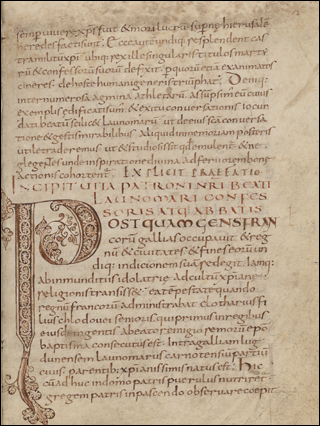 semp uiuere xps fuit & mori lucrū. supnę hierusalē
heredes facti sunt. Ecce autē undiq; resplendent cas
tra militū xpi. ubiq; rex ille singularis titulos marty
rū & confessorū suorū defixit. p quorū etiā exanimatos
cineres. de hoste humani generis triumphat. Deniq;
inter numerosa agmina athletarū. cuius
exemplis edificati sumus & exitu conuersationis. iocun
dati beatus scilic& launomarus. ut de eius sca conuersa
tione & gestis mirabilibus. aliquid in memoriam posteris
utile traderemus. ut & studiosis sit qd emulent. & ne
glegentes unde inspiratione diuina ad feruorem bonę
actionis cohortent. EXPLICIT PRAEFATIO
INCIPIT UITA PATRONI NRI BEATI
LAUNOMARI CONFES
SORIS ATQ; ABBATIS
POSTQUAM GENS FRAN
corū gallias occupauit. & reg
nū & ciuitates & fines eorū un
diq; in dicionem suā redegit. iamq;
ab inmunditiis idolatrię. ad cultū xpianę
religionis transiss&. ea tēpestate quando
regnū francorū administrabat clotharius fi
lius chlodouei senioris. qui primus in regibus
eiusdem gentis. a beato remigio remorū epo
baptisma consecutus est. Intra galliam lug
dunensem launomarus carnotensiū partiū
ciuis. parentib; xpianissimis natus est. Hic
cū adhuc in domo patris puerulus nutrirer
gregem patris in pascendo obseruare coepit.